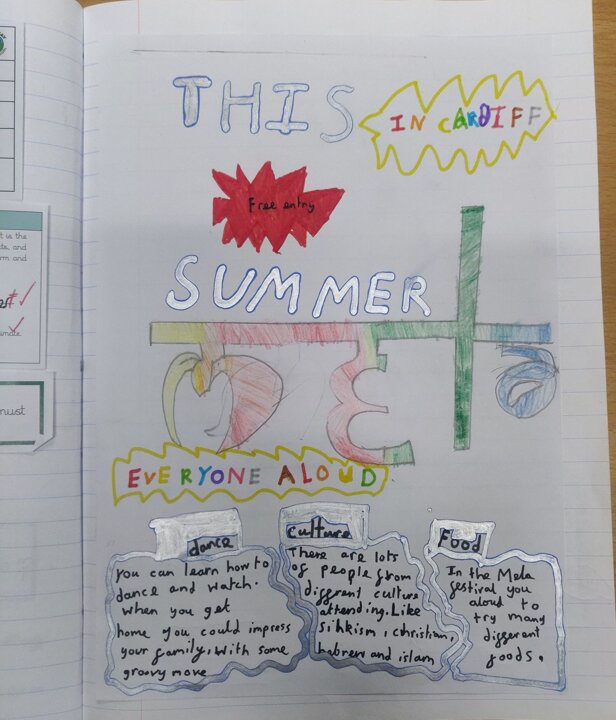 is the
and
and
must
THIS
IN CARDIFF
Free entry
SUMMER
mela
EVERYONE ALOUD
dance
You can learn how to
dance and watch.
When you get
home you could impress
your family, with some
groovy move
culture
There are lots
of people from
different culture
attending. Like
Sihkism, christian,
hebrew and islam
Food
In the Mela
festival you
aloud to
try many
different
foods.